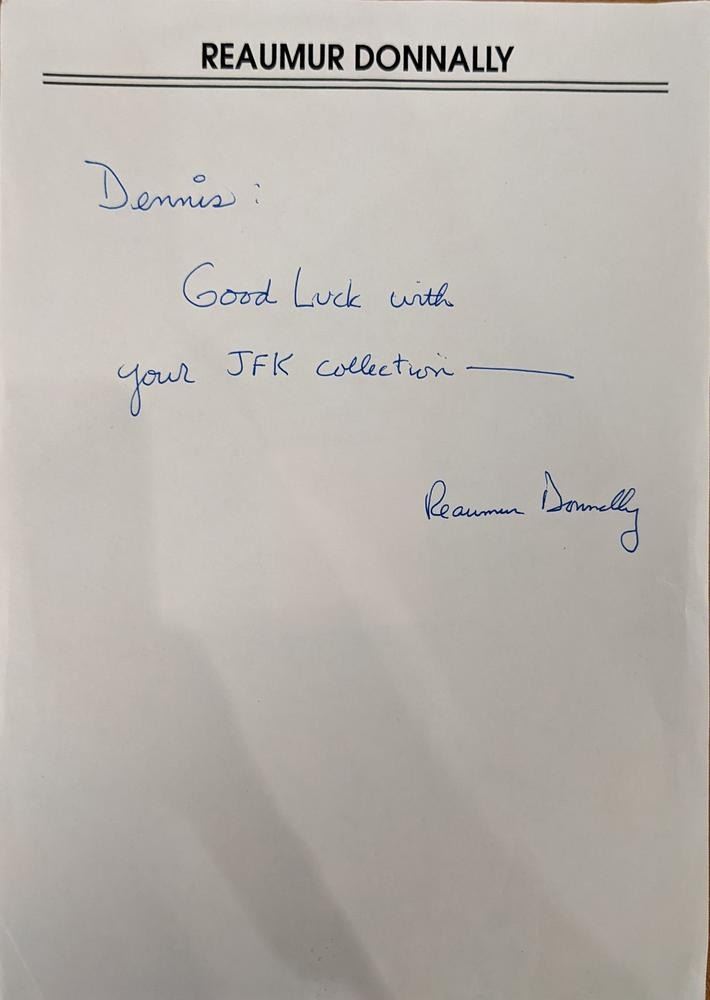 REAUMUR DONNALLY
Dennis:
Good Luck with
your JFK collection —
Reaumur Donnally